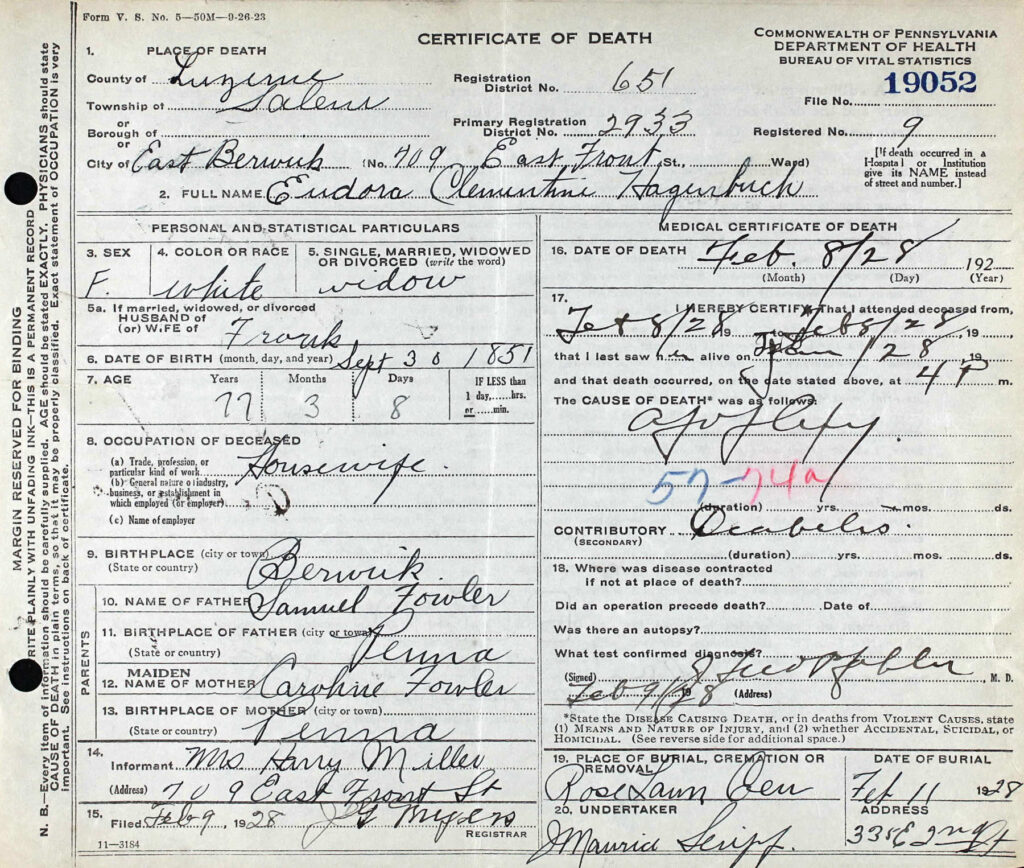 Form V. S. No. 5—50M—9-26-23
CERTIFICATE OF DEATH
COMMONWEALTH OF PENNSYLVANIA
DEPARTMENT OF HEALTH
BUREAU OF VITAL STATISTICS
19052
File No.
Registered No. 9
[If death occurred in a
Hospital or Institution
give its NAME instead
of street and number.]
1. PLACE OF DEATH
County of Luzerne
Township of Salem
or
Borough of
or
City of East Berwick
Registration
District No. 651
Primary Registration
District No. 2933
(No. 709 East Front St., Ward)
2. FULL NAME Eudora Clementine Hagenbuch
PERSONAL AND STATISTICAL PARTICULARS
3. SEX
F.
4. COLOR OR RACE
White
5. SINGLE, MARRIED, WIDOWED
OR DIVORCED (write the word)
widow
5a. If married, widowed, or divorced
HUSBAND of
(or) WIFE of
Frank
6. DATE OF BIRTH (month, day, and year) Sept 30 1851
7. AGE Years Months Days
77 3 8
IF LESS than
1 day,......hrs.
or......min.
8. OCCUPATION OF DECEASED
(a) Trade, profession, or
particular kind of work Housewife
(b) General nature of industry,
business, or establishment in
which employed (or employer)
(c) Name of employer
9. BIRTHPLACE (city or town)
(State or country) Berwick.
PARENTS
10. NAME OF FATHER Samuel Fowler
11. BIRTHPLACE OF FATHER (city or town)
(State or country) Penna
12. MAIDEN NAME OF MOTHER Caroline Fowler
13. BIRTHPLACE OF MOTHER (city or town)
(State or country) Penna
14.
Informant Mrs Harry Miller
(Address) 709 East Front St
15.
Filed Feb 9, 1928
REGISTRAR
11—3184
MEDICAL CERTIFICATE OF DEATH
16. DATE OF DEATH Feb. 8/28 192
(Month) (Day) (Year)
17.
I HEREBY CERTIFY That I attended deceased from,
Feb 8/28 19 to Feb 8/28, 19
that I last saw her alive on 28, 19
and that death occurred, on the date stated above, at 4 P m.
The CAUSE OF DEATH* was as follows:
Apoplexy.
57-74a
(duration) yrs. mos. ds.
CONTRIBUTORY Diabetes.
(SECONDARY)
(duration) yrs. mos. ds.
18. Where was disease contracted
if not at place of death?
Did an operation precede death? Date of
Was there an autopsy?
What test confirmed diagnosis?
(Signed) M. D.
Feb 9/28 19 (Address)
*State the DISEASE CAUSING DEATH, or in deaths from VIOLENT CAUSES, state
(1) MEANS AND NATURE OF INJURY, and (2) whether ACCIDENTAL, SUICIDAL, or
HOMICIDAL. (See reverse side for additional space.)
19. PLACE OF BURIAL, CREMATION OR
REMOVAL
Rose Lawn Cem
DATE OF BURIAL
Feb 11 1928
20. UNDERTAKER
Maurice
ADDRESS
335 E 2nd St
MARGIN RESERVED FOR BINDING
WRITE PLAINLY WITH UNFADING INK—THIS IS A PERMANENT RECORD
N. B.—Every item of information should be carefully supplied. AGE should be stated EXACTLY. PHYSICIANS should state
CAUSE OF DEATH in plain terms, so that it may be properly classified. Exact statement of OCCUPATION is very
important. See instructions on back of certificate.